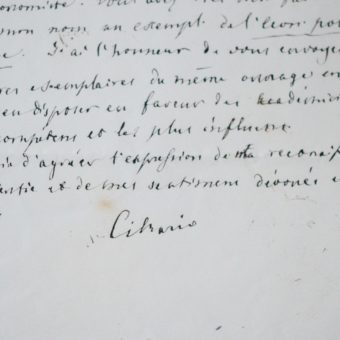 onomiste. Vous avez
mon nom un exempl. de l'écon. pol
e. J'ai l'honneur de vous envoye
res exemplaires du même ouvrage en
en disposer en faveur des academi
compétens et les plus influens.
d'agréer l'expression de ma reconnais
et de mes sentimens dévoués
Cibrario